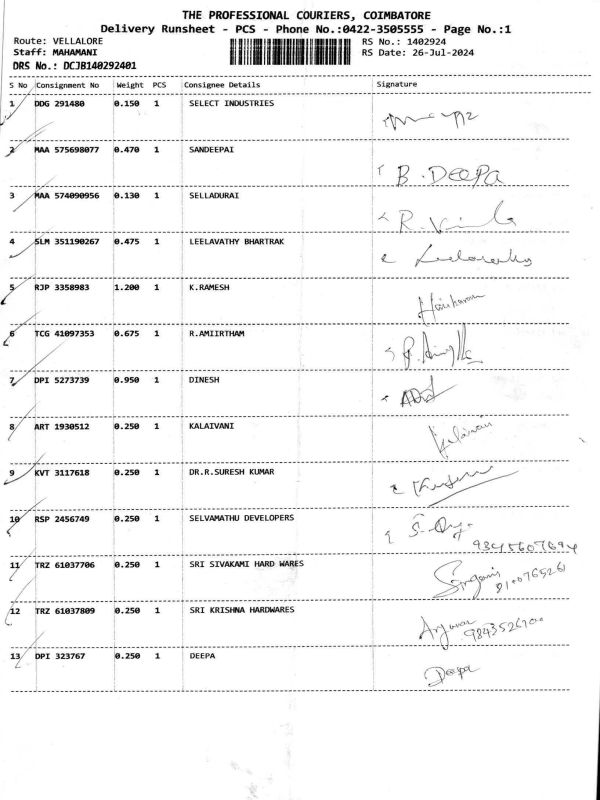 THE PROFESSIONAL COURIERS, COIMBATORE
Delivery Runsheet - PCS - Phone No.:0422-3505555 - Page No.:1
Route: VELLALORE RS No.: 1402924
Staff: MAHAMANI RS Date: 26-Jul-2024
DRS No.: DCJB140292401
S No Consignment No Weight PCS Consignee Details Signature
1 DDG 291480 0.150 1 SELECT INDUSTRIES
2 MAA 575698077 0.470 1 SANDEEPAI
B. DEEPA
3 MAA 574090956 0.130 1 SELLADURAI
4 SLM 351190267 0.475 1 LEELAVATHY BHARTRAK
5 RJP 3358983 1.200 1 K.RAMESH
6 TCG 41097353 0.675 1 R.AMIIRTHAM
7 DPI 5273739 0.950 1 DINESH
8 ART 1930512 0.250 1 KALAIVANI
9 KVT 3117618 0.250 1 DR.R.SURESH KUMAR
10 RSP 2456749 0.250 1 SELVAMATHU DEVELOPERS
11 TRZ 61037706 0.250 1 SRI SIVAKAMI HARD WARES
12 TRZ 61037809 0.250 1 SRI KRISHNA HARDWARES
13 DPI 323767 0.250 1 DEEPA
Deepa